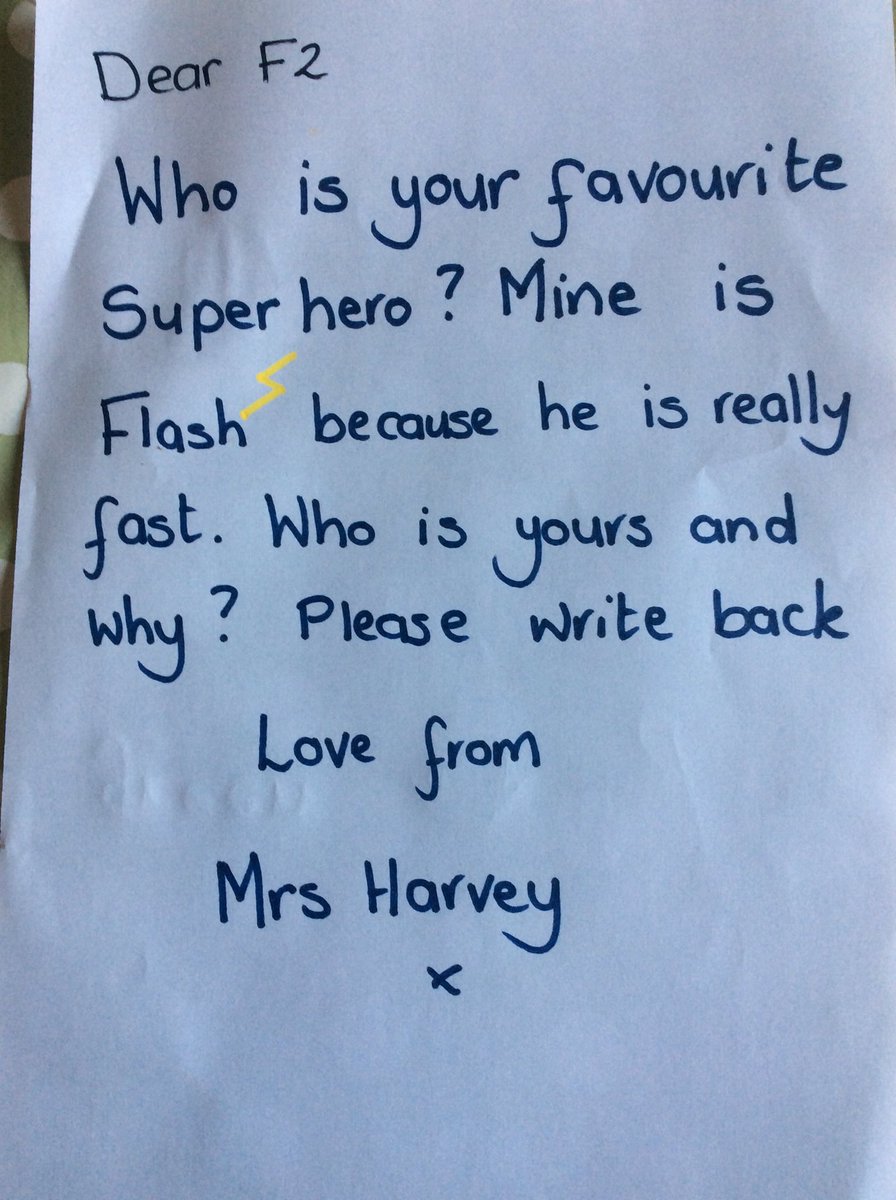 Dear F2
Who is your favourite
Super hero? Mine is
Flash because he is really
fast. Who is yours and
why? Please write back
Love from
Mrs Harvey
x